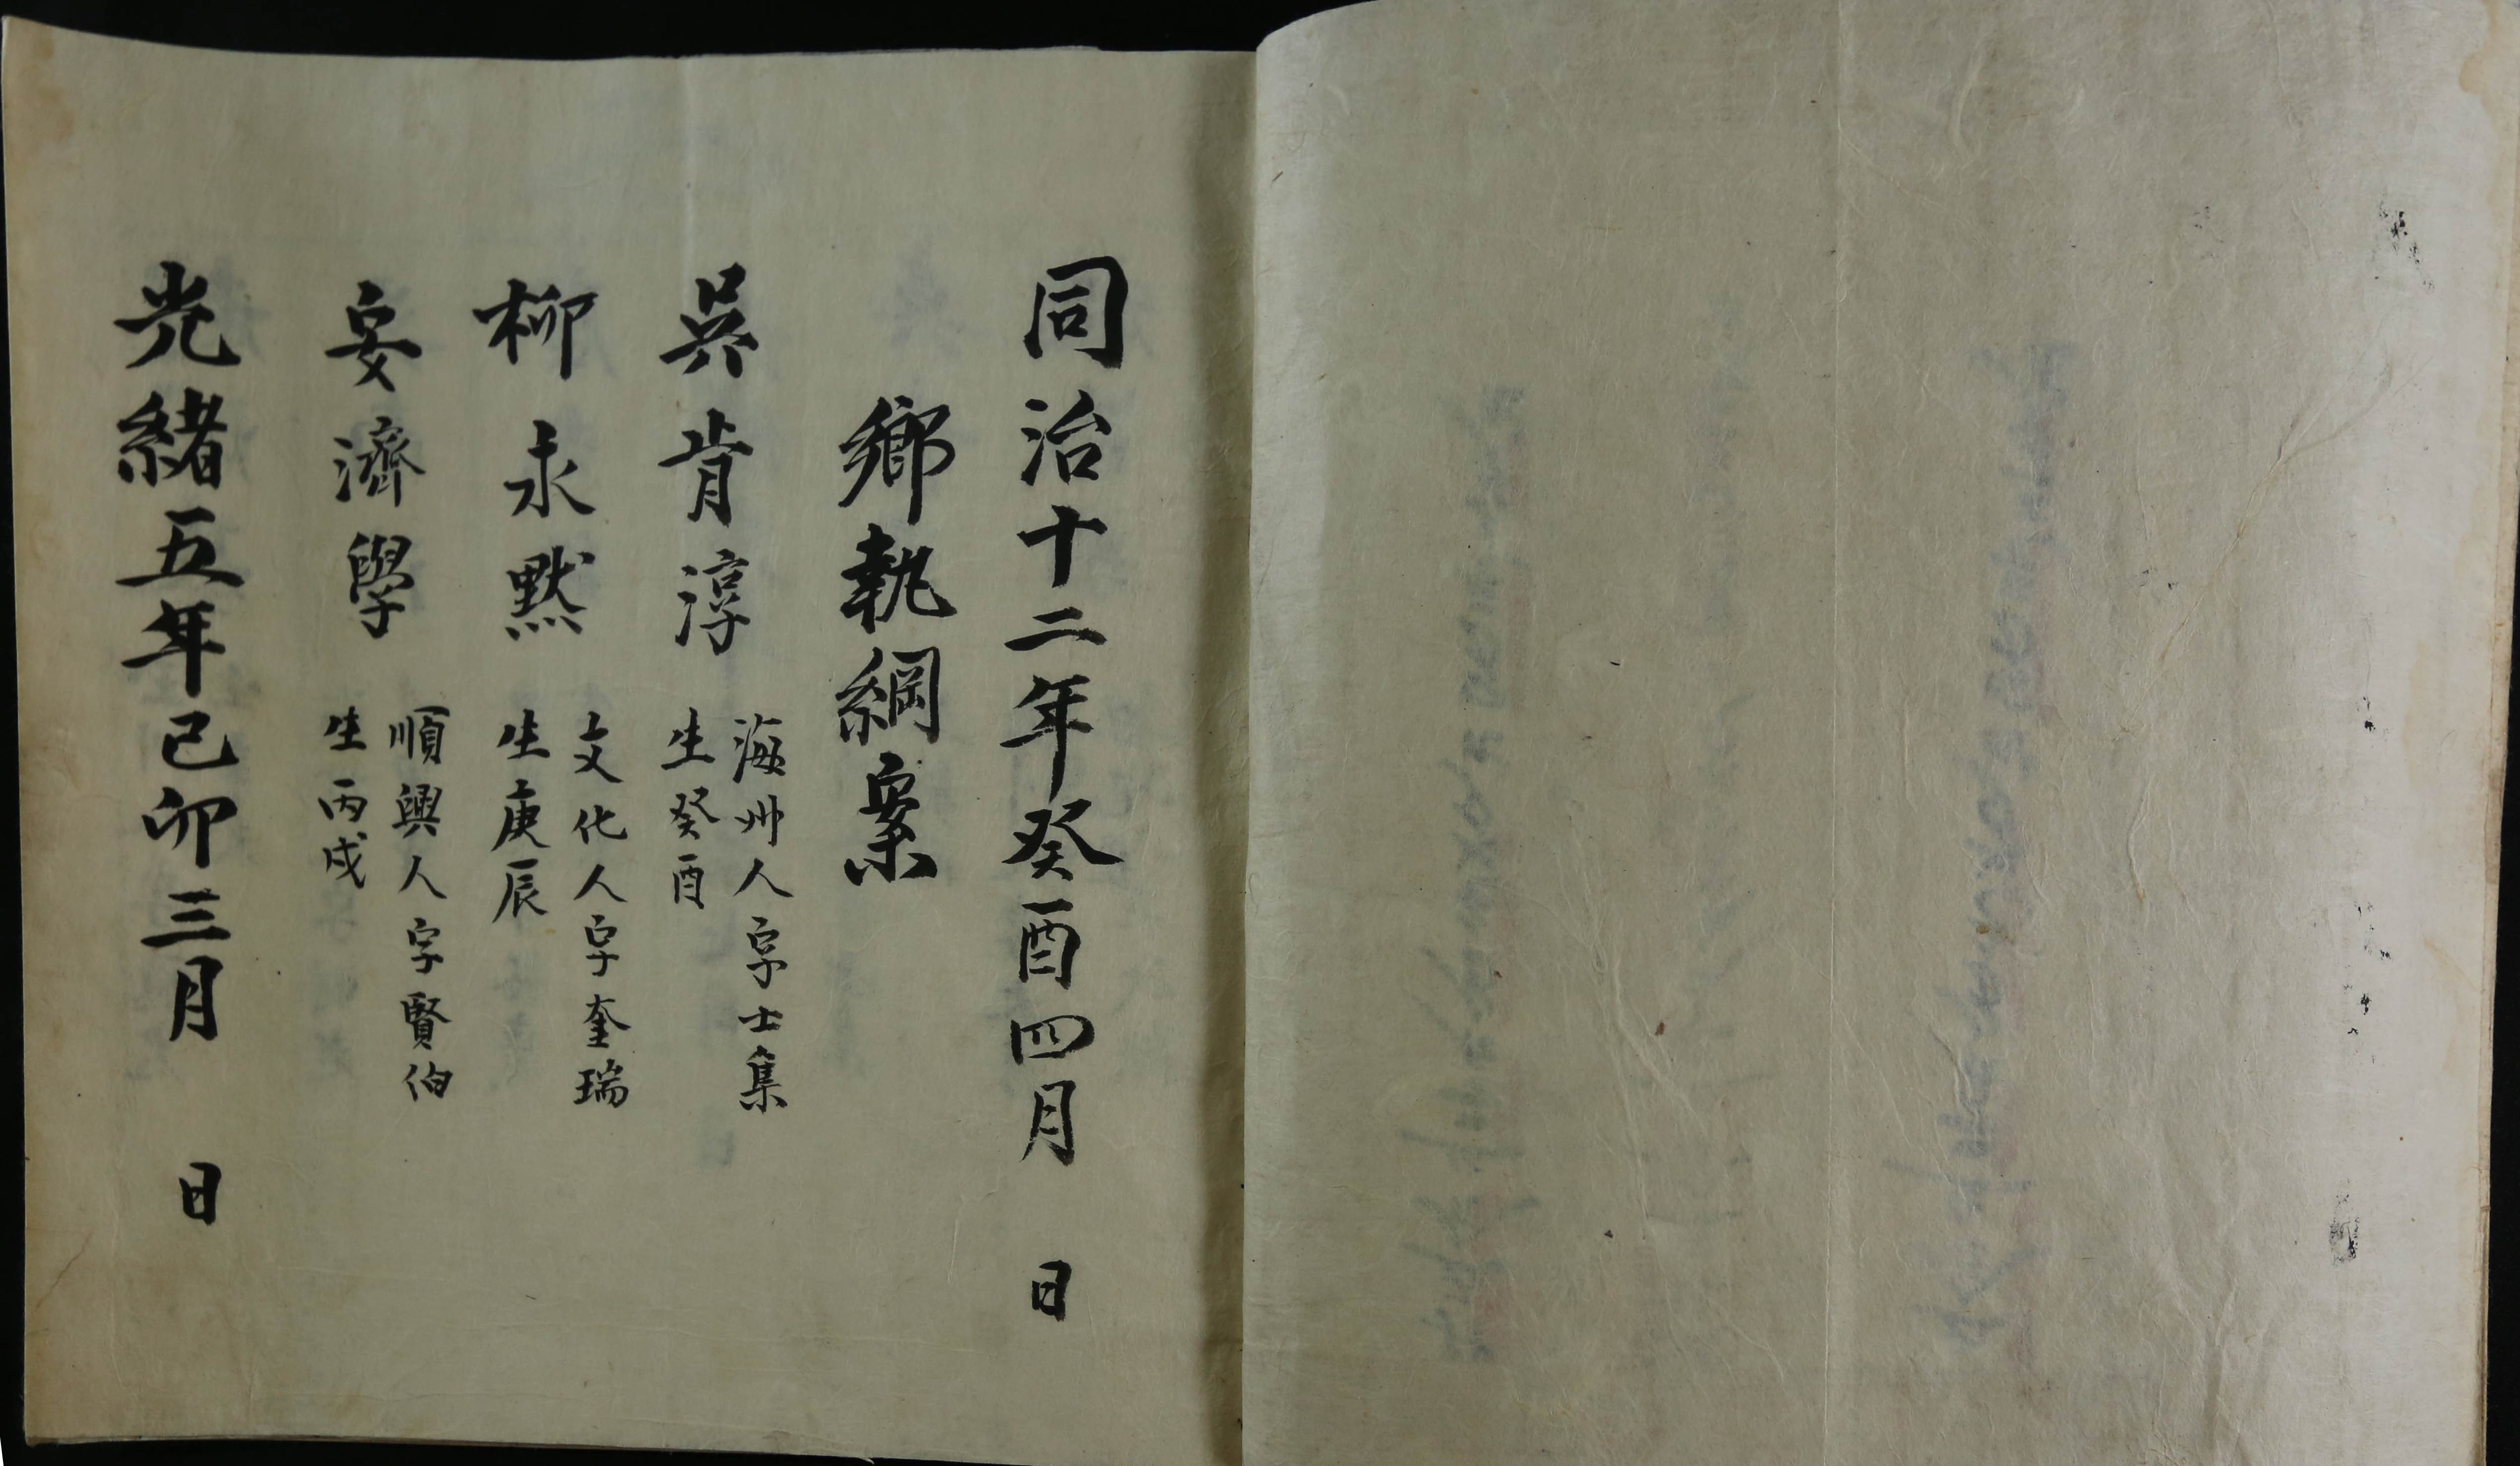 同治十二年癸酉四月 日
鄉執綱案
吳肯淳 海州人字士集
生癸酉
柳永默 文化人字奎瑞
生庚辰
安濟學 順興人字賢伯
生丙戌
光緖五年己卯三月 日